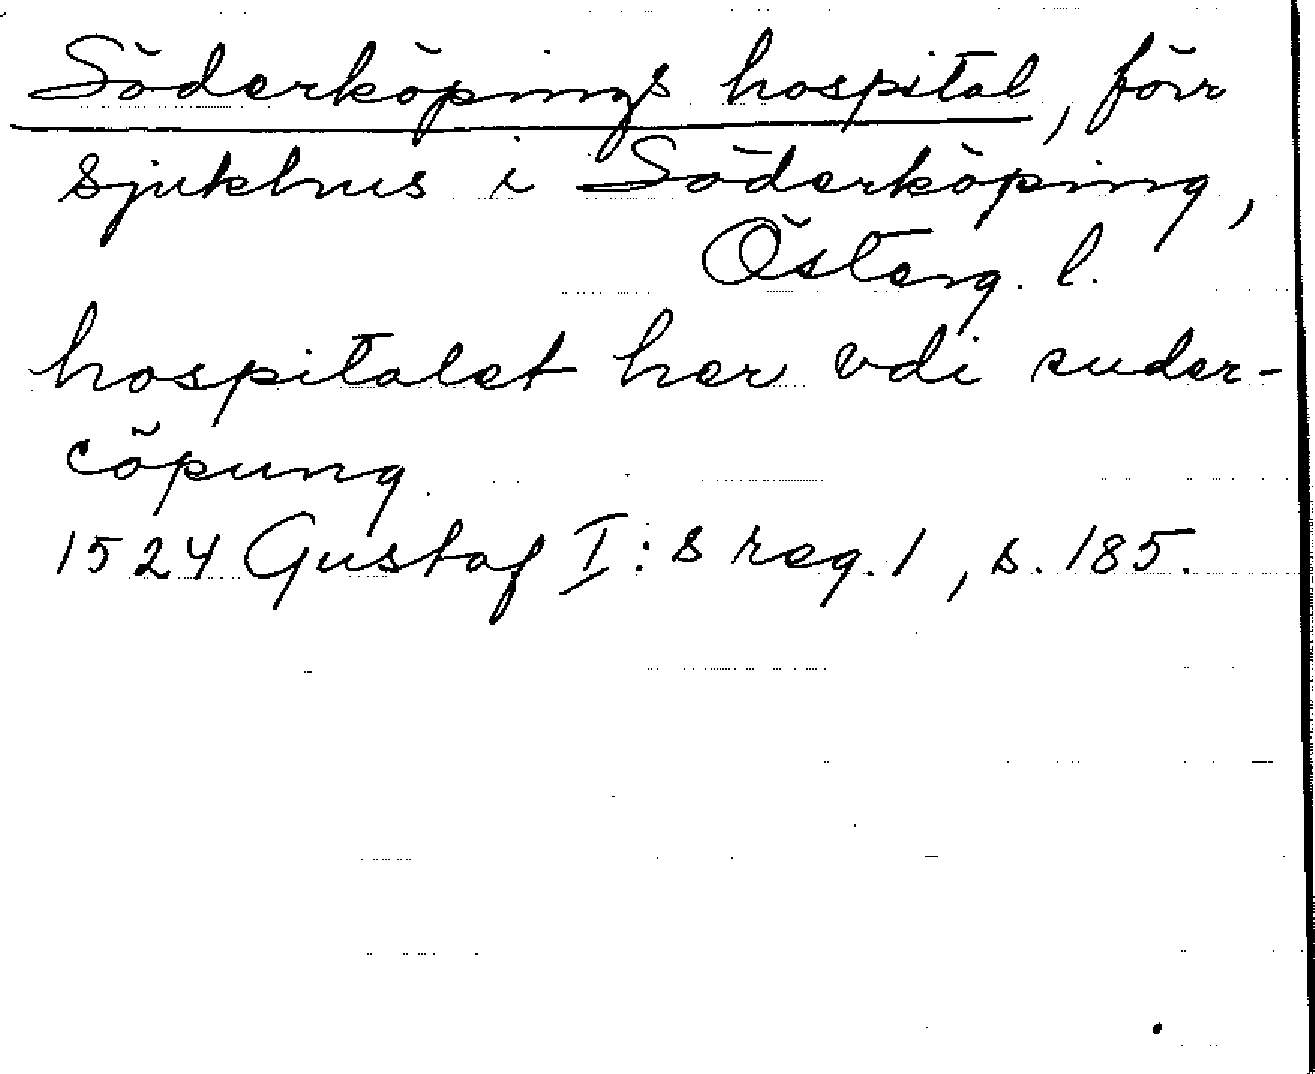 Söderköpings hospital, förr
sjukhus i Söderköping,
Österg. l.
hospitalet her vdi suder-
cöpung.
1524 Gustaf I:s reg. 1, s. 185.